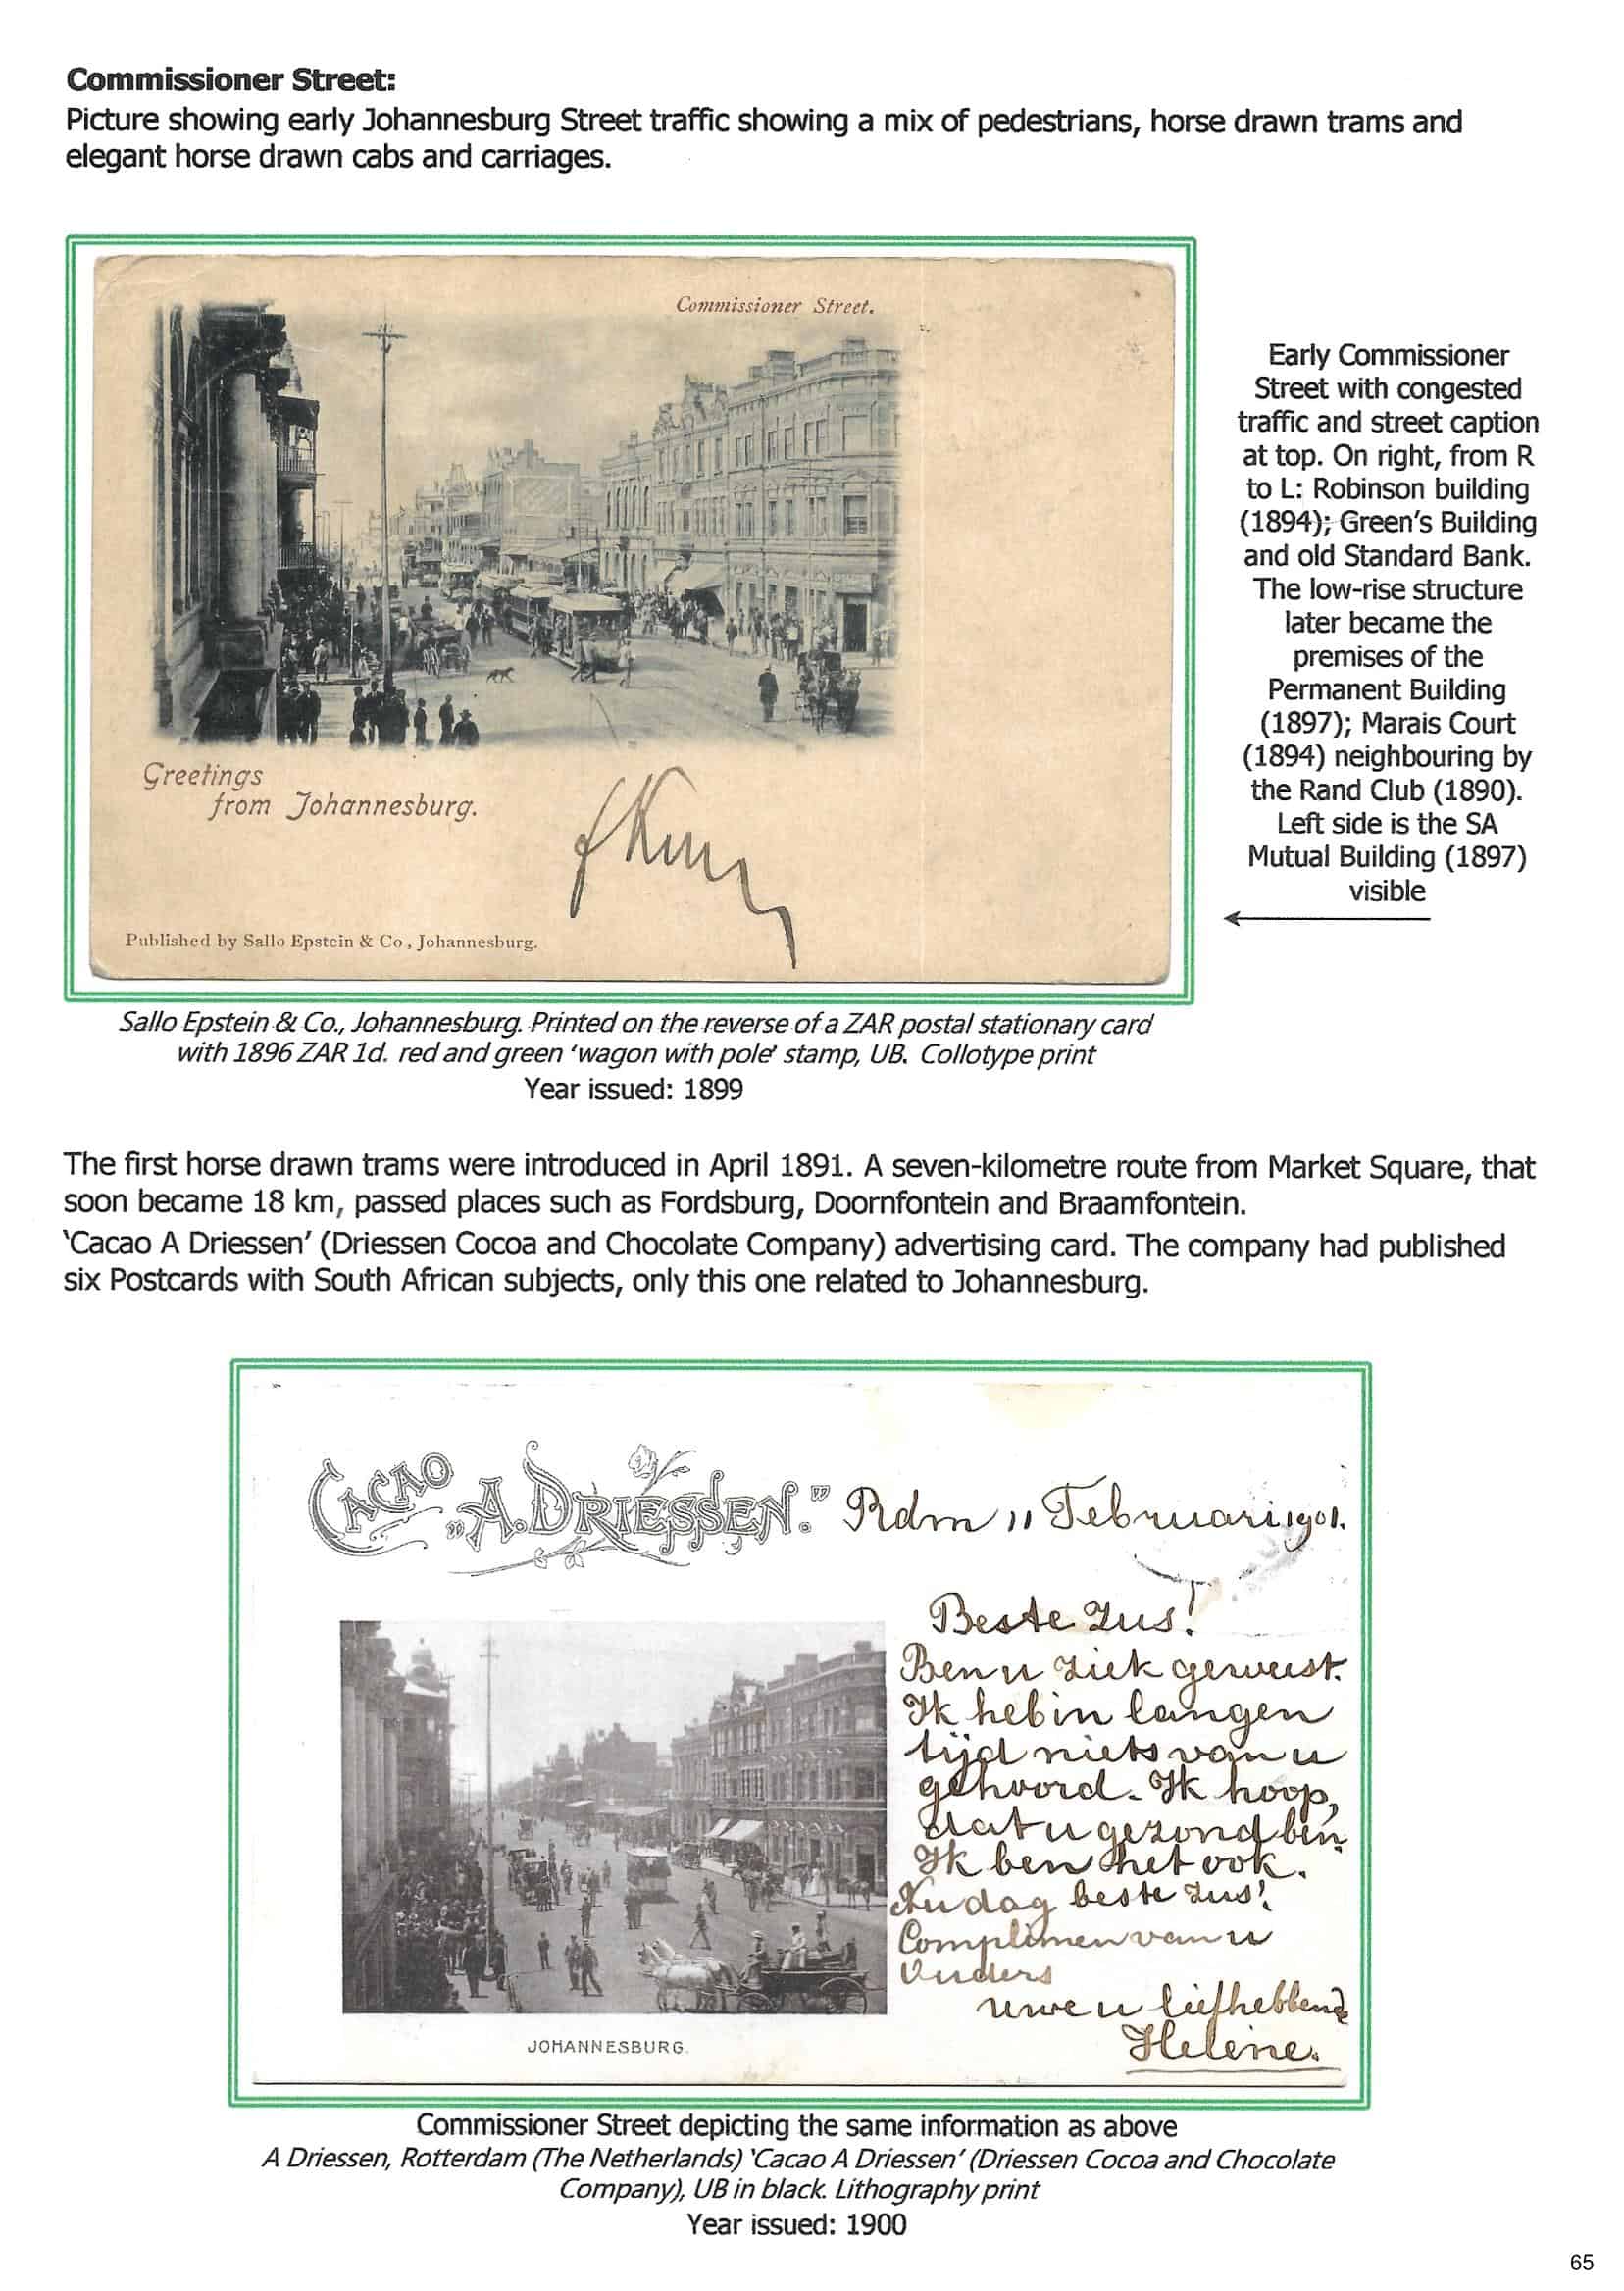 Commissioner Street:
Picture showing early Johannesburg Street traffic showing a mix of pedestrians, horse drawn trams and
elegant horse drawn cabs and carriages.
Commissioner Street.
Greetings
from Johannesburg.
Published by Sallo Epstein & Co, Johannesburg.
Early Commissioner
Street with congested
traffic and street caption
at top. On right, from R
to L: Robinson building
(1894); Green's Building
and old Standard Bank.
The low-rise structure
later became the
premises of the
Permanent Building
(1897); Marais Court
(1894) neighbouring by
the Rand Club (1890).
Left side is the SA
Mutual Building (1897)
visible
Sallo Epstein & Co., Johannesburg. Printed on the reverse of a ZAR postal stationary card
with 1896 ZAR 1d. red and green 'wagon with pole' stamp, UB. Collotype print
Year issued: 1899
The first horse drawn trams were introduced in April 1891. A seven-kilometre route from Market Square, that
soon became 18 km, passed places such as Fordsburg, Doornfontein and Braamfontein.
'Cacao A Driessen' (Driessen Cocoa and Chocolate Company) advertising card. The company had published
six Postcards with South African subjects, only this one related to Johannesburg.
CACAO „A. DRIESSEN."
Rdm 11 Februari 1901.
Beste Zus!
Ben u ziek geweest.
Ik heb in langen
tijd niets van u
gehoord. Ik hoop,
dat u gezond ben.
Ik ben het ook.
Nu dag beste Zus!
Complimen van u
Ouders
uwe u liefhebbende
Helene.
JOHANNESBURG.
Commissioner Street depicting the same information as above
A Driessen, Rotterdam (The Netherlands) 'Cacao A Driessen' (Driessen Cocoa and Chocolate
Company), UB in black. Lithography print
Year issued: 1900
65